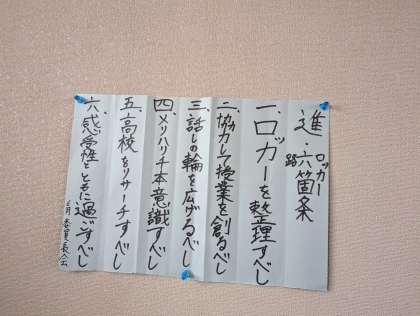 進・六箇条
路
ロッカー
一.ロッカーを整理すべし
二.協力して授業を創るべし
三.話しの輪を広げるべし
四.メリハリチ本意識すべし
五.高校をリサーチすべし
六.感受性とともに過ごすべし
委員長会